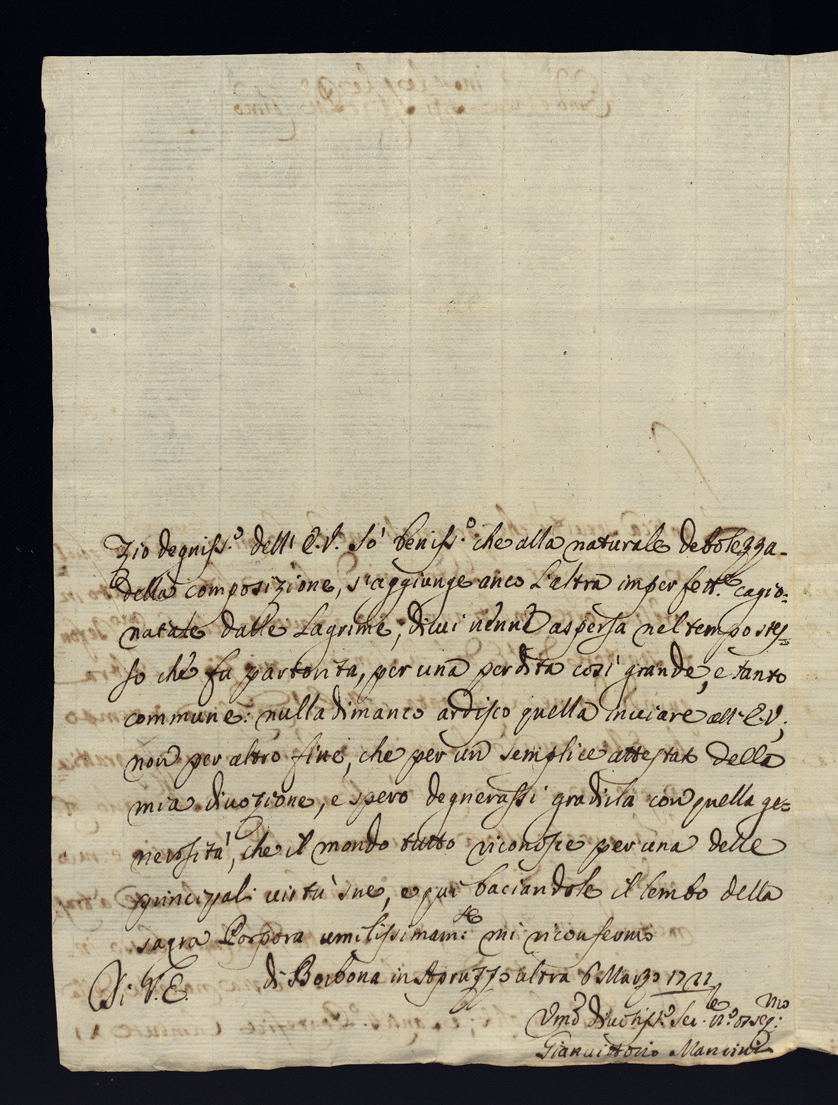 Zio degniss.º dell' E.V. Sò beniss.º che alla naturale debolezza
della composizione, s'aggiunge anco l'altra imperfett.e cagio=
natale dalle lagrime, di cui venne aspersa nel tempo stes=
so che fu partorita, per una perdita così grande, e tanto
commune: nulladimanco ardisco quella inviare all'E.V.,
non per altro fine, che per un semplice attestato della
mia divozione, e spero degnerassi gradila con quella ge=
nerosità, che il mondo tutto riconosce per una delle
principali virtù sue, e qui baciandole il lembo della
sagra Porpora umilissimam:te mi riconfermo
Di V.E. di Borbona in Apruzzo ultra 6 Marzo 1721
Umo Divotiss.º Ser.
Gianvittorio Mancini